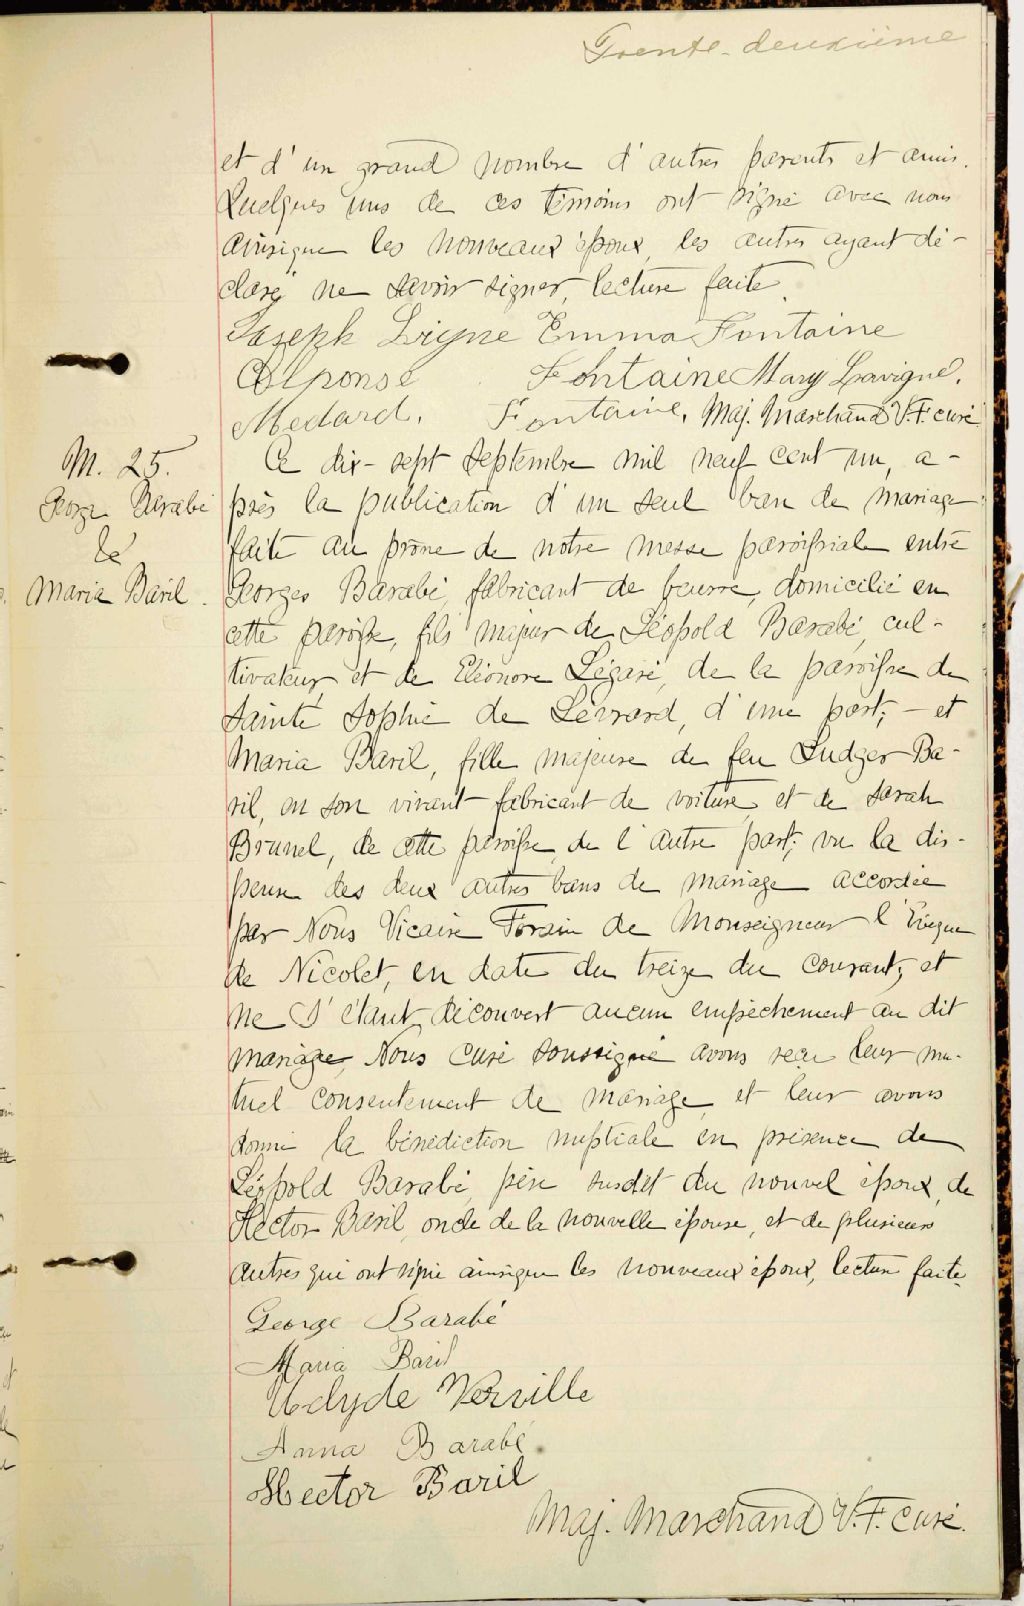 Trente-deuxième
et d'un grand nombre d'autres parents et amis.
Quelques uns de ces témoins ont signé avec nous
ainsique les nouveaux époux, les autres ayant dé-
claré ne savoir signer, lecture faite.
Joseph Ligne Emma Fontaine
Alponse Fontaine Mary Lavigne.
Medard. Fontaine. Maj. Marchand V.F. curé
M. 25.
George Barabé
&
Maria Baril.
Ce dix-sept septembre mil neuf cent un, a-
près la publication d'un seul ban de mariage
faite au prône de notre messe paroissiale entre
Georges Barabé, fabricant de beurre, domicilié en
cette paroisse, fils majeur de Léopold Barabé, cul-
tivateur, et de Eléonore Légaré, de la paroisse de
Sainte Sophie de Lévrard, d'une part; - et
Maria Baril, fille majeure de feu Ludger Ba-
ril, en son vivant fabricant de voiture, et de Sarah
Brunel, de cette paroisse, de l'autre part; vu la dis-
pense des deux autres bans de mariage accordée
par Nous Vicaire Forain de Monseigneur l'Evêque
de Nicolet, en date du treize du courant; et
ne s'étant découvert aucun empêchement au dit
mariage, Nous curé soussigné avons reçu leur mu-
tuel consentement de mariage, et leur avons
donné la bénédiction nuptiale en présence de
Léopold Barabé, père susdit du nouvel époux, de
Hector Baril, oncle de la nouvelle épouse, et de plusieurs
autres qui ont signé ainsique les nouveaux époux, lecture faite.
George Barabé
Maria Baril
Verville
Anna Barabé.
Hector Baril
Maj. Marchand V.F. curé.